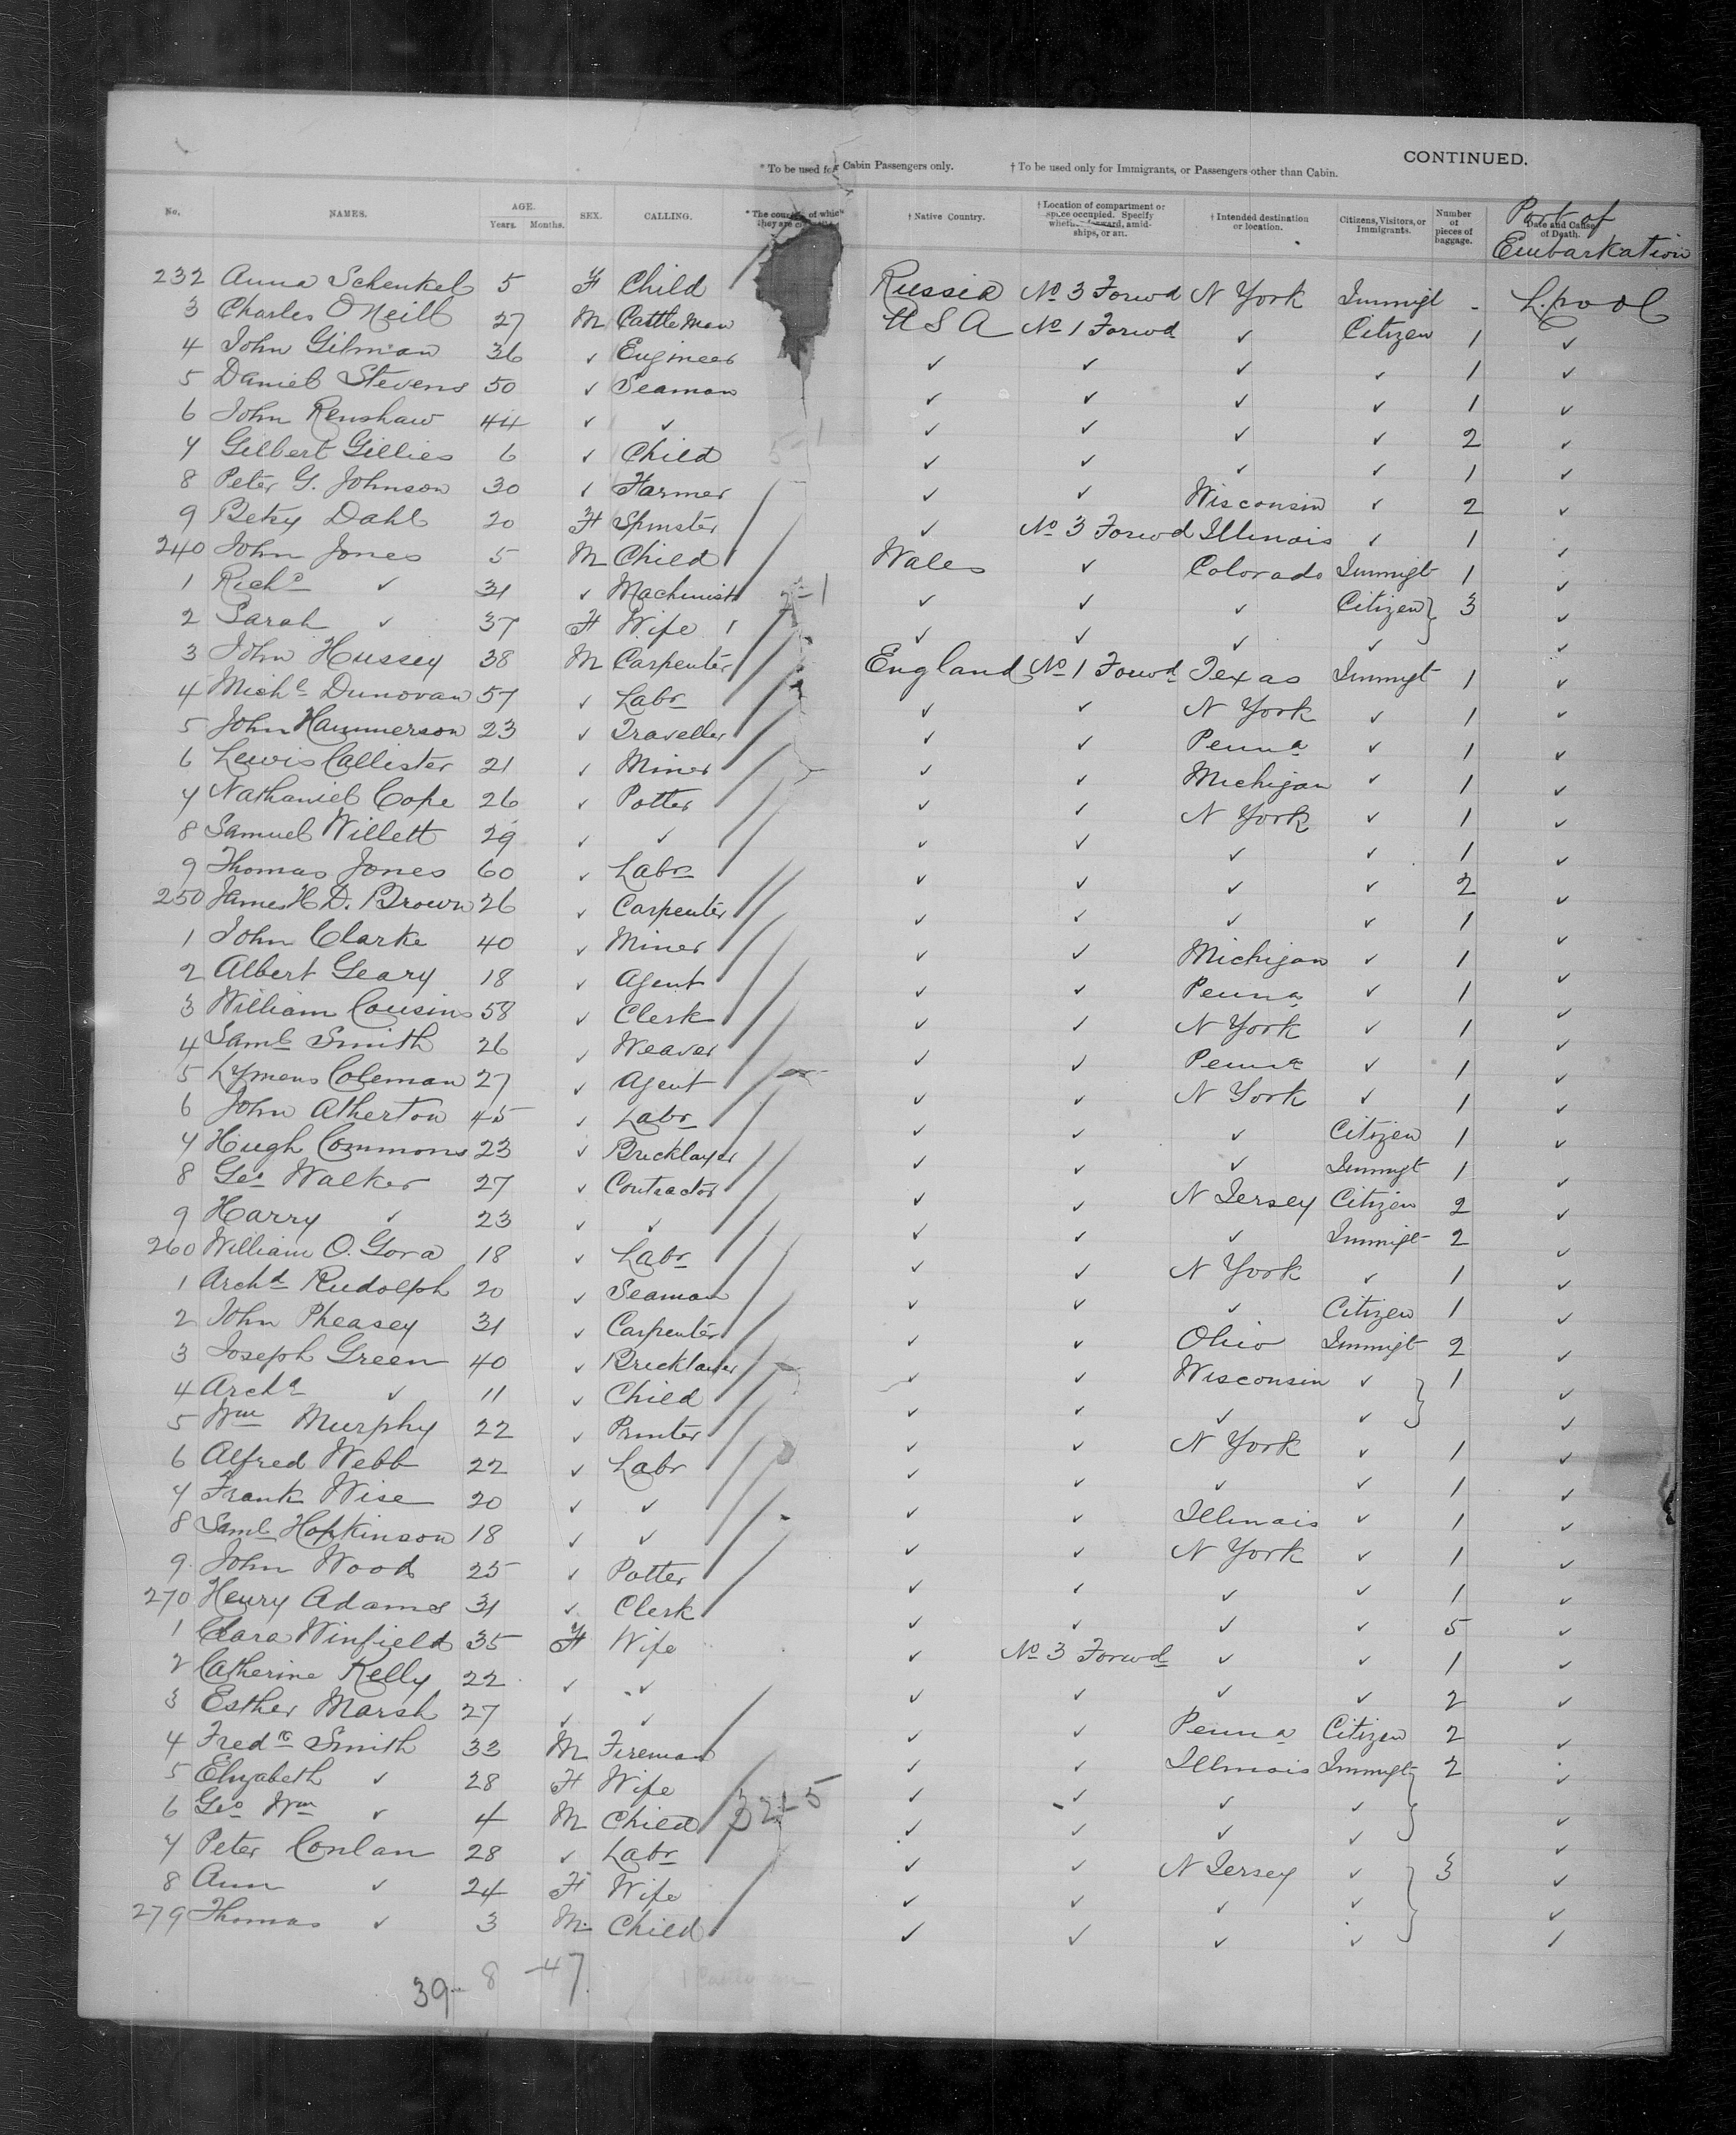 CONTINUED.
* To be used for Cabin Passengers only. † To be used only for Immigrants, or Passengers other than Cabin.
No. NAMES. AGE. Years. Months. SEX. CALLING. * The country of which they are † Native Country. † Location of compartment or space occupied. Specify whether forward, amidships, or aft. † Intended destination or location. Citizens, Visitors, or Immigrants. Number of pieces of baggage. Date and Cause of Death. Port of Embarkation
232 Anna Schenkel 5 F Child Russia No 3 Forwd N York Immigt - L.pool
3 Charles O'Neill 27 M Cattle Man U S A No 1 Forwd ✓ Citizen 1 ✓
4 John Gilman 36 ✓ Engineer ✓ ✓ ✓ ✓ 1 ✓
5 Daniel Stevens 50 ✓ Seaman ✓ ✓ ✓ ✓ 1 ✓
6 John Renshaw 44 ✓ ✓ ✓ ✓ ✓ ✓ 2 ✓
7 Gilbert Gillies 6 ✓ Child 5-1 ✓ ✓ ✓ ✓ 1 ✓
8 Peter G. Johnson 30 ✓ Farmer ✓ ✓ Wisconsin ✓ 2 ✓
9 Betsy Dahl 20 F Spinster ✓ No 3 Forwd Illinois ✓ 1 ✓
240 John Jones 5 M Child Wales ✓ Colorado Immigt 1 ✓
1 Richd ✓ 31 ✓ Machinist ✓ ✓ ✓ Citizen } 3 ✓
2 Sarah ✓ 37 F Wife ✓ ✓ ✓ ✓ ✓
3 John Hussey 38 M Carpenter England No 1 Forwd Texas Immigt 1 ✓
4 Michl Dunovan 57 ✓ Labr ✓ ✓ N York ✓ 1 ✓
5 John Hammerson 23 ✓ Traveller ✓ ✓ Penna ✓ 1 ✓
6 Lewis Callister 21 ✓ Miner ✓ ✓ Michigan ✓ 1 ✓
7 Nathaniel Cope 26 ✓ Potter ✓ ✓ N York ✓ 1 ✓
8 Samuel Willett 29 ✓ ✓ ✓ ✓ ✓ ✓ 1 ✓
9 Thomas Jones 60 ✓ Labr ✓ ✓ ✓ ✓ 2 ✓
250 James H D. Brown 26 ✓ Carpenter ✓ ✓ ✓ ✓ 1 ✓
1 John Clarke 40 ✓ Miner ✓ ✓ Michigan ✓ 1 ✓
2 Albert Geary 18 ✓ Agent ✓ ✓ Penna ✓ 1 ✓
3 William Cousins 58 ✓ Clerk ✓ ✓ N York ✓ 1 ✓
4 Saml Smith 26 ✓ Weaver ✓ ✓ Penna ✓ 1 ✓
5 Lymens Coleman 27 ✓ Agent ✓ ✓ N York ✓ 1 ✓
6 John Atherton 45 ✓ Labr ✓ ✓ ✓ Citizen 1 ✓
7 Hugh Commons 23 ✓ Bricklayer ✓ ✓ ✓ Immigt 1 ✓
8 Geo Walker 27 ✓ Contractor ✓ ✓ N Jersey Citizen 2 ✓
9 Harry ✓ 23 ✓ ✓ ✓ ✓ ✓ Immigt 2 ✓
260 William O. Gora 18 ✓ Labr ✓ ✓ N York ✓ 1 ✓
1 Archd Rudolph 20 ✓ Seaman ✓ ✓ ✓ Citizen 1 ✓
2 John Pheasey 31 ✓ Carpenter ✓ ✓ Ohio Immigt 2 ✓
3 Joseph Green 40 ✓ Bricklayer ✓ ✓ Wisconsin ✓ } 1 ✓
4 Archd ✓ 11 ✓ Child ✓ ✓ ✓ ✓ ✓
5 Wm Murphy 22 ✓ Printer ✓ ✓ N York ✓ 1 ✓
6 Alfred Webb 22 ✓ Labr ✓ ✓ ✓ ✓ 1 ✓
7 Frank Wise 20 ✓ ✓ ✓ ✓ Illinois ✓ 1 ✓
8 Saml Hopkinson 18 ✓ ✓ ✓ ✓ N York ✓ 1 ✓
9. John Wood 25 ✓ Potter ✓ ✓ ✓ ✓ 1 ✓
270 Henry Adams 31 ✓ Clerk ✓ ✓ ✓ ✓ 5 ✓
1 Clara Winfield 35 F Wife ✓ No 3 Forwd ✓ ✓ 1 ✓
2 Catherine Kelly 22 ✓ ✓ ✓ ✓ ✓ ✓ 2 ✓
3 Esther Marsh 27 ✓ ✓ ✓ ✓ Penna Citizen 2 ✓
4 Fredc Smith 33 M Fireman ✓ ✓ Illinois Immigt } 2 ✓
5 Elizabeth ✓ 28 F Wife ✓ ✓ ✓ ✓ ✓
6 Geo Wm ✓ 4 M Child ✓ ✓ ✓ ✓ ✓
7 Peter Conlan 28 ✓ Labr ✓ ✓ N Jersey ✓ } 3 ✓
8 Ann ✓ 24 F Wife ✓ ✓ ✓ ✓ ✓
279 Thomas ✓ 3 M Child ✓ ✓ ✓ ✓ ✓
39 - 8 - 47